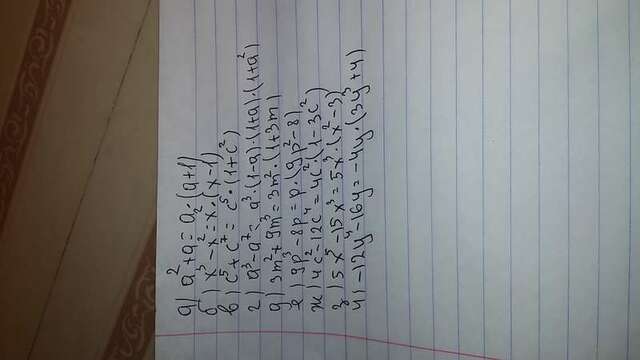 а) a²+a=a·(a+1)
б) x³-x²=x²·(x-1)
в) c⁵+c⁷=c⁵·(1+c²)
г) a³-a⁷=a³·(1-a)·(1+a)·(1+a²)
д) 3m²+9m³=3m²·(1+3m)
е) 9p³-8p=p·(9p²-8)
ж) 4c²-12c⁴=4c²·(1-3c²)
з) 5x⁵-15x³=5x³·(x²-3)
и) -12y⁴-16y=-4y·(3y³+4)